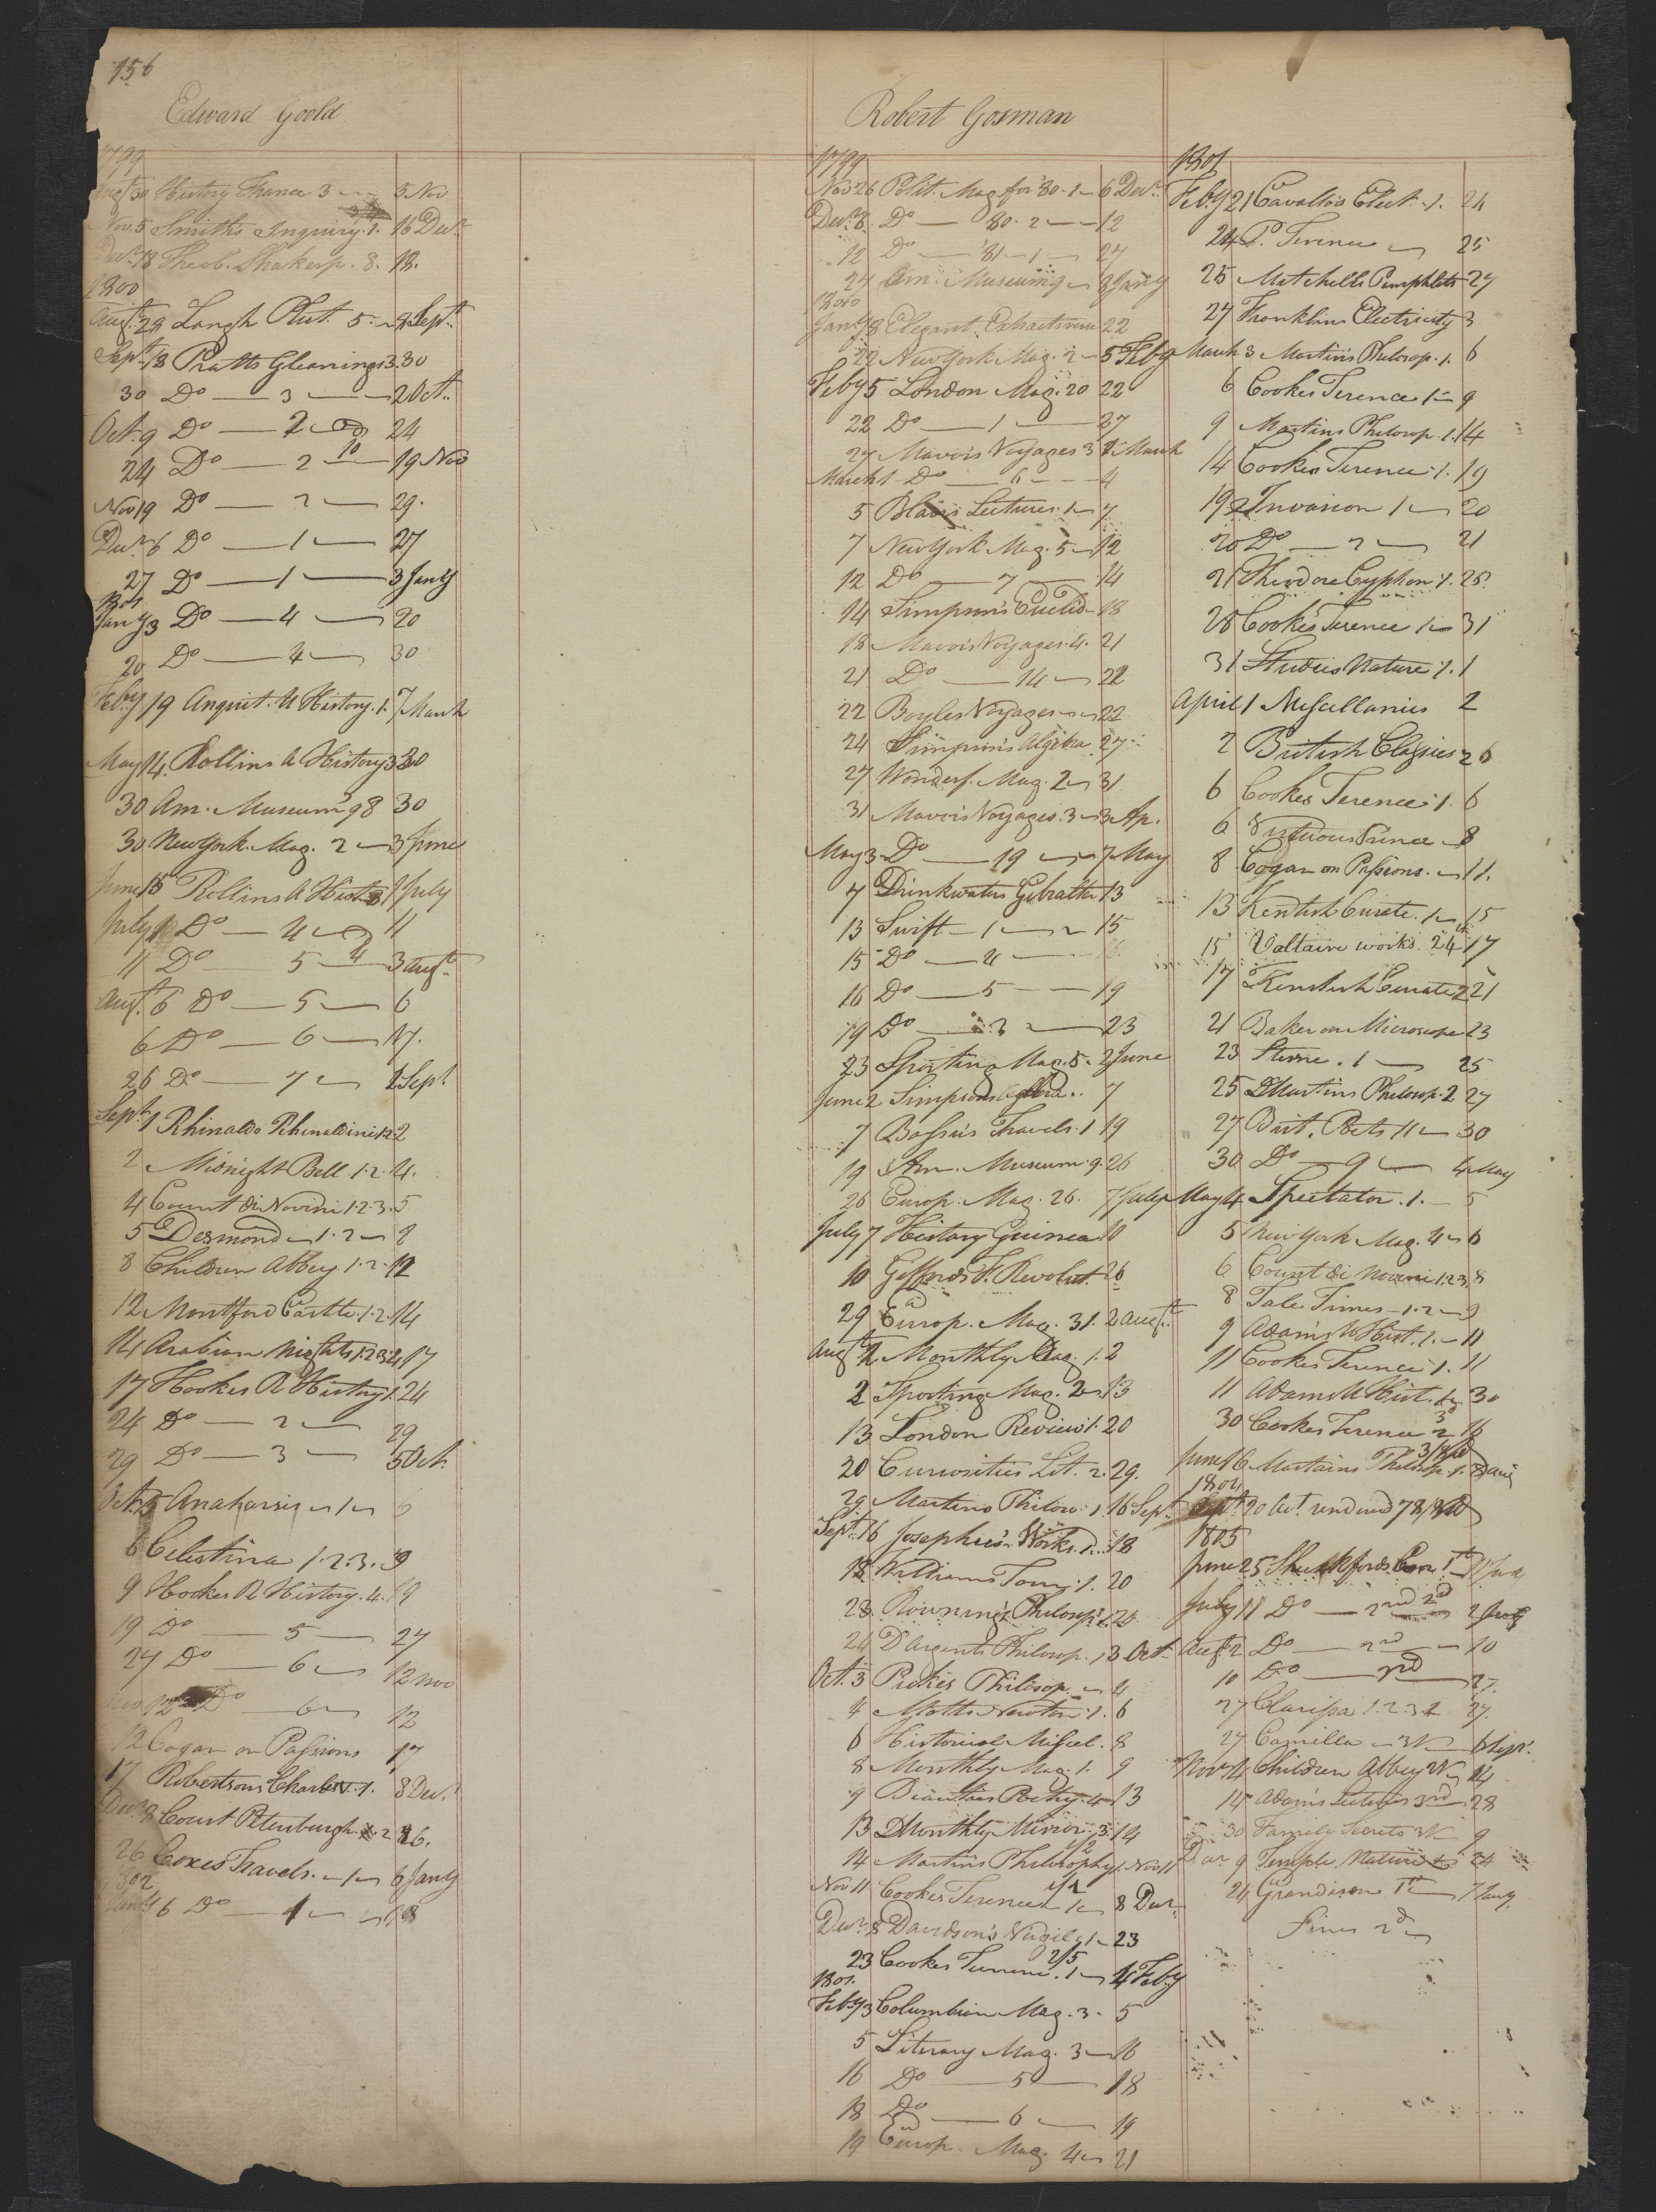 156
Edward Goold
1799
Augt 30 History France 3 5 Nov
Nov. 5 Smith's Inquiry. 1. 16 Decr
Decr 13 Theob. Shakesp. 8. 18.
1800
Augt 28 Langh Plut. 5. 8 Sept
Sept 18 Pratts Gleanings 3. 30
30 Do 3 2 Oct.
Oct. 9 Do 2 24
24 Do 2 19 Nov
Nov 19 Do 2 29.
Decr 6 Do 1 27
27 Do 1 3 Jany
1801
Jany 3 Do 4 20
20 Do 4 30
Feby 19 Anquit. U History. 1. 7 March
May 14. Rollins A History 3 30
30 Am. Museum 98 30
30 New York Mag. 2 3 June
June 15 Rollins A Hist 3 1 July
July 1 Do 4 11
11 Do 5 3 Augt
Augt. 6 Do 5 6
6 Do 6 17.
26 Do 7 1 Sept
Sept 1 Rhinaldo Rhinaldini 1.2. 2
2 Midnight Bell 1.2. 4.
4 Count di Novini 1.2.3. 5
5 Desmond 1.2 8
8 Children Abbey. 1.2. 12
12 Montford Castle. 1.2. 14
14 Arabian Nights 1.2.3.4 17
17 Hookes R History 1. 24
24 Do 2 29
29 Do 3 5 Oct.
Oct. 5 Anaharsis 1 6
6 Celestina 1.2.3. 9
9 Hookes R History. 4. 19
19 Do 5 27
27 Do 6 12 Nov
Nov 12 Do 6 12
12 Cogan on Passions 17
17 Robertsons Charles V. 1. 8 Decr.
Decr 8 Court Petersburgh 2 26.
26 Coxes Travels. 1 6 Jany
1802
Jany 6 Do 1 18
Robert Gosman
1799
Nov 26 Polit. Mag. for '80. 1 6 Decr
Decr 6. Do '80. 2 12
12 Do '81 1 27
27 Am. Museum 9 8 Jany
1800
Jany 8 Elegant. Extracts verse 22
22 New York Mag. 2 5 Feby
Feby 5 London Mag. 20 22
22 Do 1 27
27 Mavor's Voyages 3 1 March
March 1 Do 6 4
5 Blair's Lectures. 1 7
7 New York Mag. 5 12
12 Do 7 14
14 Simpson's Euclid 18
18 Mavor's Voyages. 4. 21
21 Do 14 22
22 Boyles Voyages 22
24 Simpson's Algebra 27
27 Wonderf. Mag. 2 31
31 Mavor's Voyages. 3 3 Ap.
May 3 Do 19 7 May
7 Drinkwaters Gibralter 13
13 Swift 1 15
15 Do 4 16
16 Do 5 19
19 Do 3 23
23 Sporting Mag. 5. 2 June
June 2 Simpsons Algebra.. 7
7 Bossu's Travels. 1 19
19 Am. Museum. 9. 26
26 Europ. Mag. 26. 7 July
July 7 History Guinea 10
10 Giffords F. Revolut. 26
29 Europ. Mag. 31. 2 Augt.
Augt 2 Monthly Mag. 1. 2
2 Sporting Mag. 2 13
13 London Review 1. 20
20 Curiosities Lit. 2. 29.
29 Martins Philos. 1. 16 Sept
Sept. 16 Josephus's Works. 1. 18
18 Williams Tour. 1. 20
23 Rownings Philosp.
24 D'Argents Philosop. 1 3 Oct
Oct. 3 Philosop. 4
4 Newton. 1. 6
6 Historical Miscel. 8
8 Monthly Mag. 1. 9
9 Beauties Poetry. 13
13 Monthly Mirror. 3. 14
14 Martins Philosophy 1. Nov 11
Nov 11 Cookes Terence 1 8 Decr.
Decr. 8 Davidson's Virgil 1 23
23 Cookes Terence. 1 4 Feby
1801.
Feby 3 Columbian Mag. 3. 5
5 Literary Mag. 3 16
16 Do 5 18
18 Do 6 19
19 Europ. Mag. 4 21
1801
Feby 21 Cavallo's Elect. 1. 24
24 P. Terence 25
25 Mitchells Pamphlets 27
27 Franklins Electricity 3
March 3 Martins Philosop. 1. 6
6 Cookes Terence 1 9
9 Martins Philosop. 1. 14
14 Cookes Terence. 1. 19
19 Invasion 1 20
20 Do 2 21
21 Theodore Cyphon 1. 28
28 Cookes Terence 1 31
31 Studies Nature. 1. 1
April 1 Miscellanies 2
2 British Classics 2 6
6 Cookes Terence. 1. 6
6 Virtuous Prince 8
8 Cogan on Passions. 11.
13 Kentish Curate. 1 15
15 Voltaire works. 24 17
17 Kentish Curate 2 21
21 Baker on Microscope 23
23 Sterne. 1 25
25 Martins Philosop. 2 27
27 Brit. Poets 11 30
30 Do 9 4 May
May 4 Spectator. 1. 5
5 New York Mag. 4 6
6 Count di Novini 1.2.3 8
8 Tale Times 1.2 9
9 Adam's U Hist. 1. 11
11 Cookes Terence. 1. 11
11 Adams U Hist. 4 30
30 Cookes Terence 2 16
3/8 pd
June 16 Martains Philosop. 1. 8 Aug
1804
Sept 20 Act. rendered 78/ pd
1805
June 25 Shuckfords Con 1st 11 July
July 11 Do 2nd 2 Aug
Augt. 2 Do 2nd 10
10 Do 3rd 27.
27 Clarissa 1.2.3.4 27.
27 Camilla 3V 6 Sepr.
Novr 4 Children Abbey 14
14 Adam's Lectures 3rd 28
30 Family Secrets 9
Decr 9 Temple Nature 24
24 Grandison 1st 7 Jany
Fines